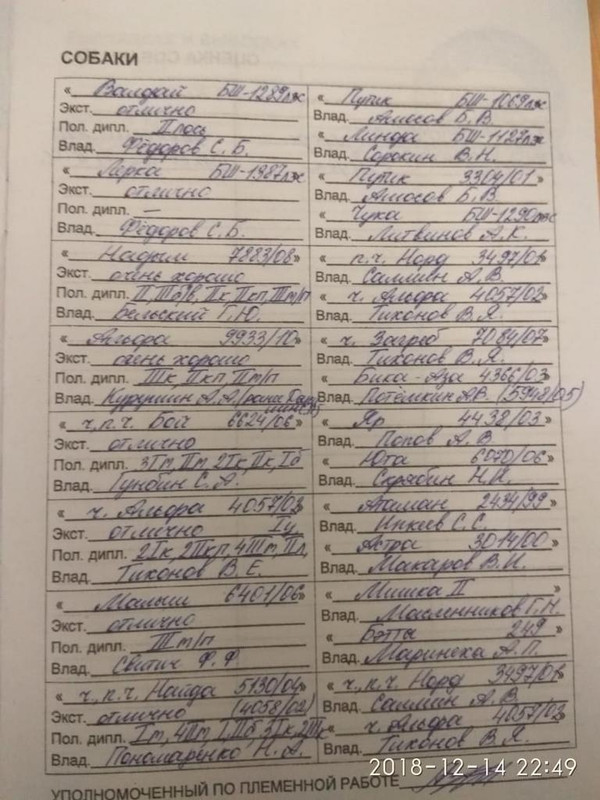 СОБАКИ
« Валдай БШ-1289лж
Экст. отлично
Пол. дипл. II лось
Влад. Фёдоров С.Б.
« Лерка БШ-1387лж
Экст. отлично
Пол. дипл. —
Влад. Фёдоров С.Б.
« Надым 7883/08»
Экст. очень хорошо
Пол. дипл.
Влад. Бельский Г.Ю.
« Альфа 9933/10»
Экст. очень хорошо
Пол. дипл. IIIк, IIкп, IIт/п
Влад. А.А.
« ч.п.ч. Бой 6624/06»
Экст. отлично
Пол. дипл. 3Iт, IIт, 2Iк, IIк, Iб
Влад. Гунбин С.А.
« ч. Альфа 4057/02
Экст. отлично
Пол. дипл. 2Iк, 2IIкп, 4IIIт,
Влад. Тихонов В.Е.
« Малыш 6401/06»
Экст. отлично
Пол. дипл. IIIт/п
Влад. Свитич Ф.Ф.
« ч.п.ч. Найда 5130/04»
Экст. отлично (4058/02)
Пол. дипл. Iт, 4IIт,
Влад. Пономаренко Н.А.
« Путик БШ-1069лж
Влад. Амосов Б.В.
« Линда БШ-1127лж
Влад. Сорокин В.Н.
« Путик 3304/01»
Влад. Амосов Б.В.
« Чука БШ-1290лж
Влад. Литвинов А.К.
« п.ч. Норд 3497/01»
Влад. Саммин А.В.
« ч. Альфа 4057/02»
Влад. Тихонов В.Я.
« ч. Загриб 7084/07»
Влад. Тихонов В.Я.
« Бика-Аза 4366/03»
Влад. Потёмкин А.В. (5948/05)
« Яр 4438/03»
Влад. Попов А.В.
« Юта 6020/06»
Влад. Скрябин Н.И.
« Атаман 2434/99»
Влад. Инкиев С.С.
« Астра 3014/00»
Влад. Макаров В.И.
« Мишка II »
Влад. Масленников Г.Н.
« Бэтты 249 »
Влад. Маринека А.П.
« ч.,п.ч. Норд 3497/01»
Влад. Саммин А.В.
« ч. Альфа 4057/02»
Влад. Тихонов В.Я.
УПОЛНОМОЧЕННЫЙ ПО ПЛЕМЕННОЙ РАБОТЕ
2018-12-14 22:49